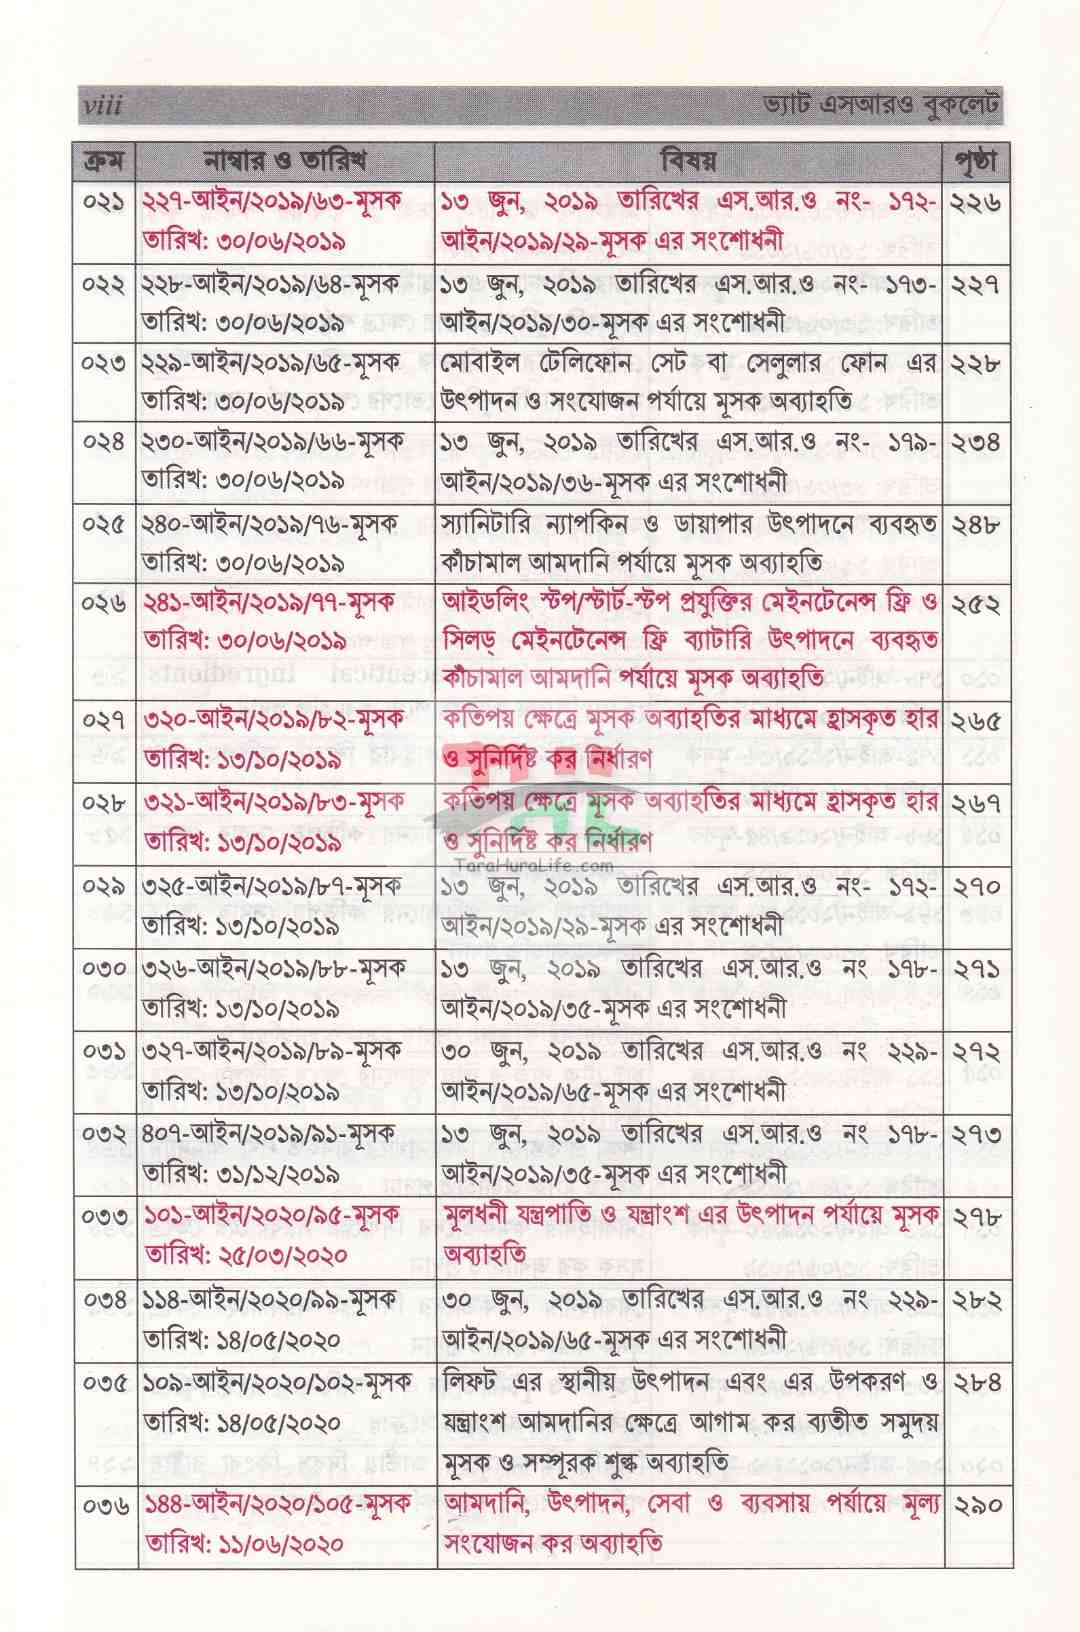 viii ভ্যাট এসআরও বুকলেট
ক্রম নাম্বার ও তারিখ বিষয় পৃষ্ঠা
০২১ ২২৭-আইন/২০১৯/৬৩-মূসক ১৩ জুন, ২০১৯ তারিখের এস.আর.ও নং- ১৭২- ২২৬
তারিখ: ৩০/০৬/২০১৯ আইন/২০১৯/২৯-মূসক এর সংশোধনী
০২২ ২২৮-আইন/২০১৯/৬৪-মূসক ১৩ জুন, ২০১৯ তারিখের এস.আর.ও নং- ১৭৩- ২২৭
তারিখ: ৩০/০৬/২০১৯ আইন/২০১৯/৩০-মূসক এর সংশোধনী
০২৩ ২২৯-আইন/২০১৯/৬৫-মূসক মোবাইল টেলিফোন সেট বা সেলুলার ফোন এর ২২৮
তারিখ: ৩০/০৬/২০১৯ উৎপাদন ও সংযোজন পর্যায়ে মূসক অব্যাহতি
০২৪ ২৩০-আইন/২০১৯/৬৬-মূসক ১৩ জুন, ২০১৯ তারিখের এস.আর.ও নং- ১৭৯- ২৩৪
তারিখ: ৩০/০৬/২০১৯ আইন/২০১৯/৩৬-মূসক এর সংশোধনী
০২৫ ২৪০-আইন/২০১৯/৭৬-মূসক স্যানিটারি ন্যাপকিন ও ডায়াপার উৎপাদনে ব্যবহৃত ২৪৮
তারিখ: ৩০/০৬/২০১৯ কাঁচামাল আমদানি পর্যায়ে মূসক অব্যাহতি
০২৬ ২৪১-আইন/২০১৯/৭৭-মূসক আইডলিং স্টপ/স্টার্ট-স্টপ প্রযুক্তির মেইনটেনেন্স ফ্রি ও ২৫২
তারিখ: ৩০/০৬/২০১৯ সিলড্ মেইনটেনেন্স ফ্রি ব্যাটারি উৎপাদনে ব্যবহৃত
কাঁচামাল আমদানি পর্যায়ে মূসক অব্যাহতি
০২৭ ৩২০-আইন/২০১৯/৮২-মূসক কতিপয় ক্ষেত্রে মূসক অব্যাহতির মাধ্যমে হ্রাসকৃত হার ২৬৫
তারিখ: ১৩/১০/২০১৯ ও সুনির্দিষ্ট কর নির্ধারণ
০২৮ ৩২১-আইন/২০১৯/৮৩-মূসক কতিপয় ক্ষেত্রে মূসক অব্যাহতির মাধ্যমে হ্রাসকৃত হার ২৬৭
তারিখ: ১৩/১০/২০১৯ ও সুনির্দিষ্ট কর নির্ধারণ
TaraHuraLife.com
০২৯ ৩২৫-আইন/২০১৯/৮৭-মূসক ১৩ জুন, ২০১৯ তারিখের এস.আর.ও নং- ১৭২- ২৭০
তারিখ: ১৩/১০/২০১৯ আইন/২০১৯/২৯-মূসক এর সংশোধনী
০৩০ ৩২৬-আইন/২০১৯/৮৮-মূসক ১৩ জুন, ২০১৯ তারিখের এস.আর.ও নং ১৭৮- ২৭১
তারিখ: ১৩/১০/২০১৯ আইন/২০১৯/৩৫-মূসক এর সংশোধনী
০৩১ ৩২৭-আইন/২০১৯/৮৯-মূসক ৩০ জুন, ২০১৯ তারিখের এস.আর.ও নং ২২৯- ২৭২
তারিখ: ১৩/১০/২০১৯ আইন/২০১৯/৬৫-মূসক এর সংশোধনী
০৩২ ৪০৭-আইন/২০১৯/৯১-মূসক ১৩ জুন, ২০১৯ তারিখের এস.আর.ও নং ১৭৮- ২৭৩
তারিখ: ৩১/১২/২০১৯ আইন/২০১৯/৩৫-মূসক এর সংশোধনী
০৩৩ ১০১-আইন/২০২০/৯৫-মূসক মূলধনী যন্ত্রপাতি ও যন্ত্রাংশ এর উৎপাদন পর্যায়ে মূসক ২৭৮
তারিখ: ২৫/০৩/২০২০ অব্যাহতি
০৩৪ ১১৪-আইন/২০২০/৯৯-মূসক ৩০ জুন, ২০১৯ তারিখের এস.আর.ও নং ২২৯- ২৮২
তারিখ: ১৪/০৫/২০২০ আইন/২০১৯/৬৫-মূসক এর সংশোধনী
০৩৫ ১০৯-আইন/২০২০/১০২-মূসক লিফট এর স্থানীয় উৎপাদন এবং এর উপকরণ ও ২৮৪
তারিখ: ১৪/০৫/২০২০ যন্ত্রাংশ আমদানির ক্ষেত্রে আগাম কর ব্যতীত সমুদয়
মূসক ও সম্পূরক শুল্ক অব্যাহতি
০৩৬ ১৪৪-আইন/২০২০/১০৫-মূসক আমদানি, উৎপাদন, সেবা ও ব্যবসায় পর্যায়ে মূল্য ২৯০
তারিখ: ১১/০৬/২০২০ সংযোজন কর অব্যাহতি